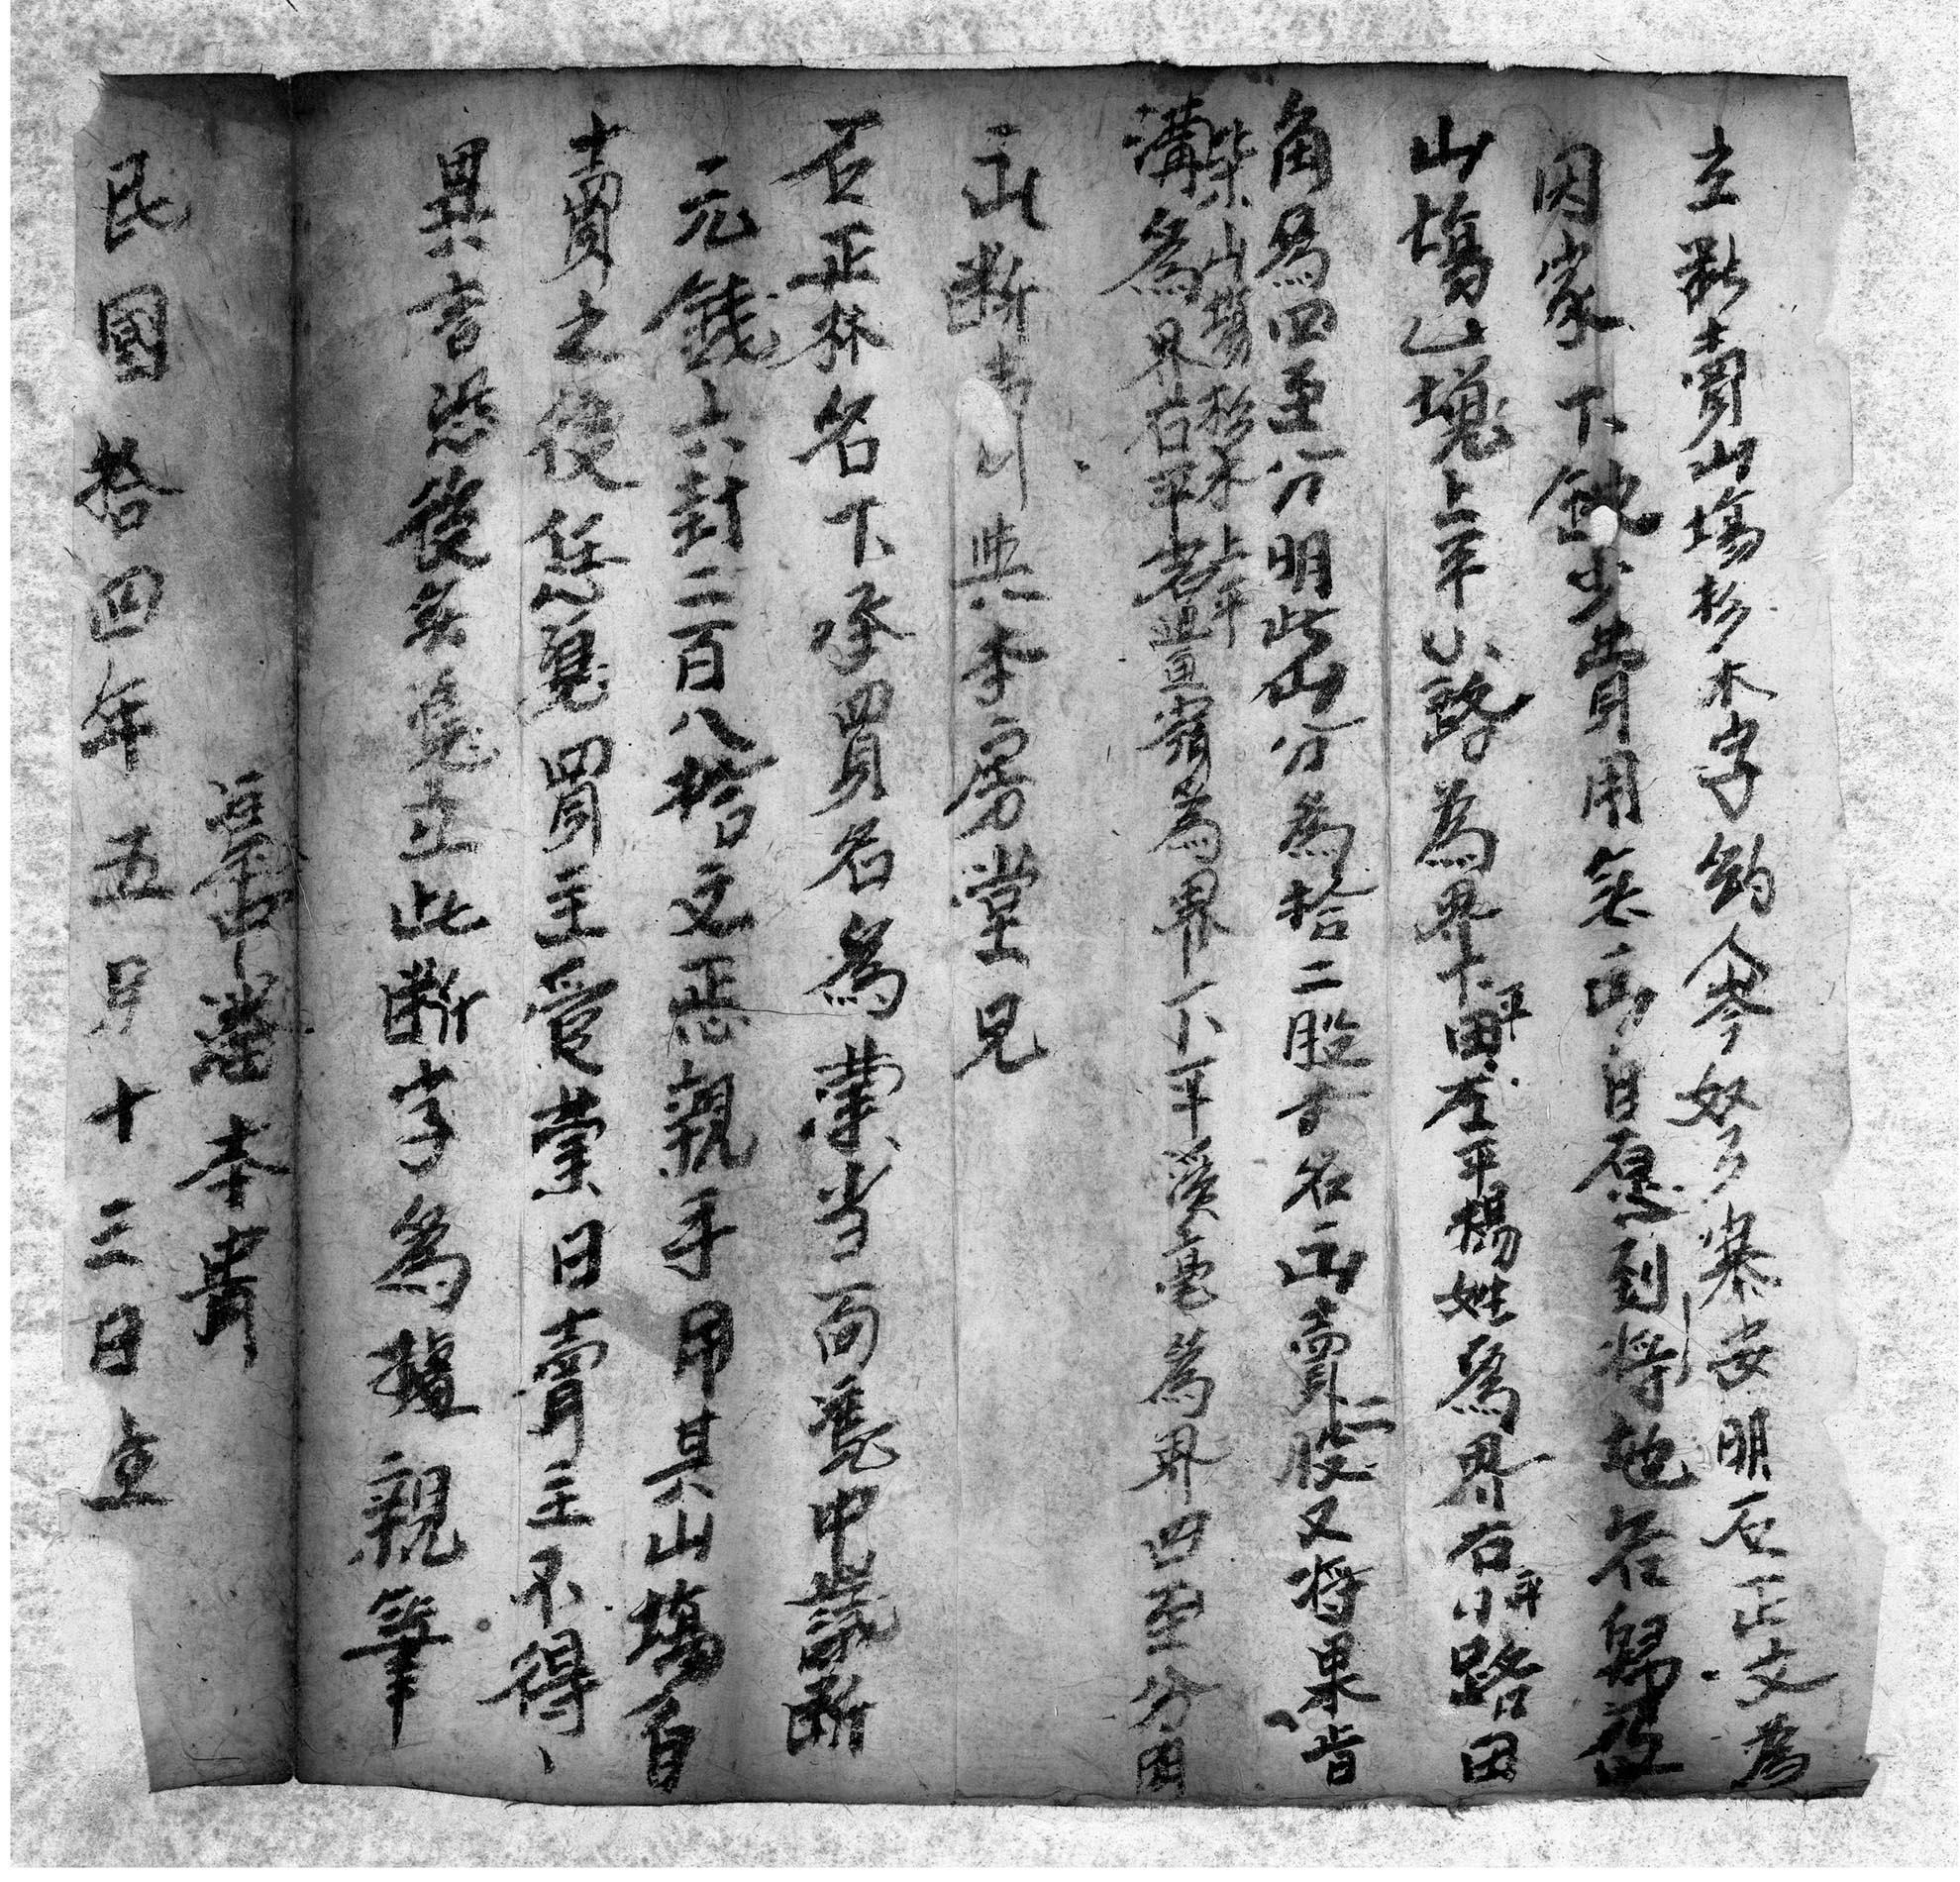 立斷賣山塲杉木字約人岑努多寨安明石正文為
因家下缺少費用無出自愿到將地名歸
山塲山塊上平小路為界下平田左平楊姓為界右平小路田
角為四至分明此山分為拾二股本名出賣二股又將果
柴山塲杉木上平
溝為界右平岩直嶺為界下平溪毫為界四至分明
出斷賣與本房堂兄
石正林名下承買名為業当面憑中議断
元錢六封二百八拾文正親手用其山塲自
賣之後任憑買主管業日賣主不得
異言恐後無憑立此断字為據親筆
憑中潘本貴
民國拾四年五月十三日立